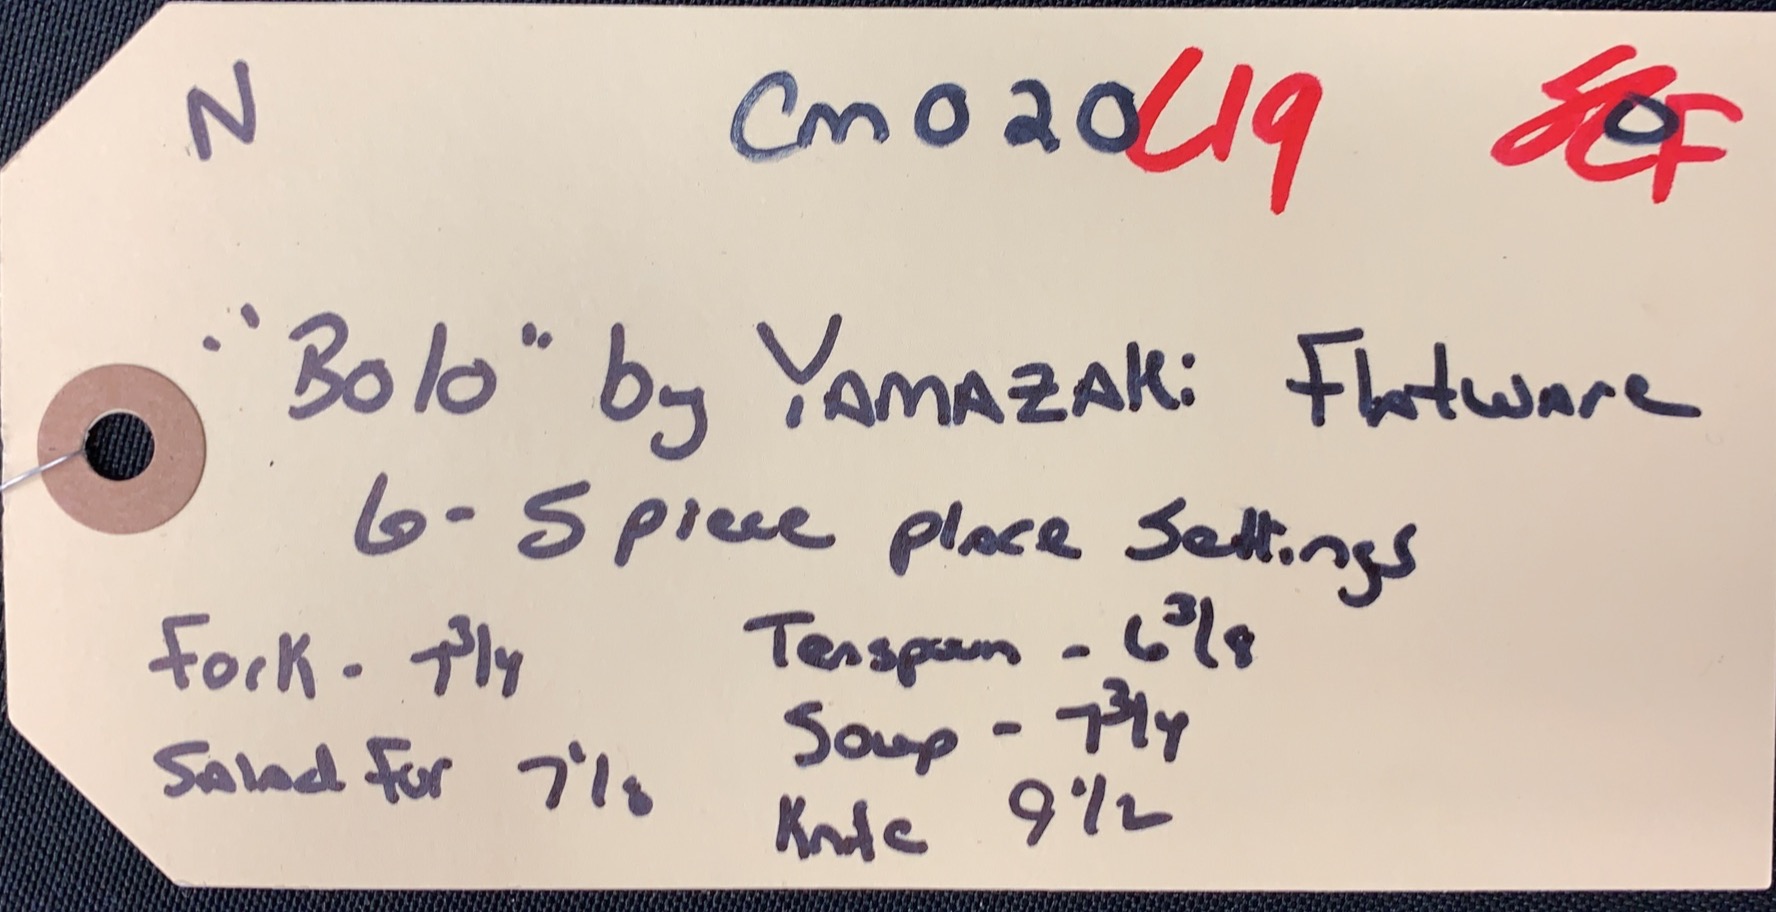 N Cm020 L19
"Bolo" by YAMAZAKi Flatware
6 - 5 piece place Settings
Fork - 7 3/4 Teaspoon - 6 3/8
Soup - 7 3/4
Salad For 7 1/8
Knife 9 1/2